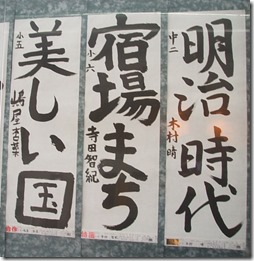 明治時代
中二
木村晴
宿場まち
小六
寺田智紀
美しい国
小五
嶋屋杏菜